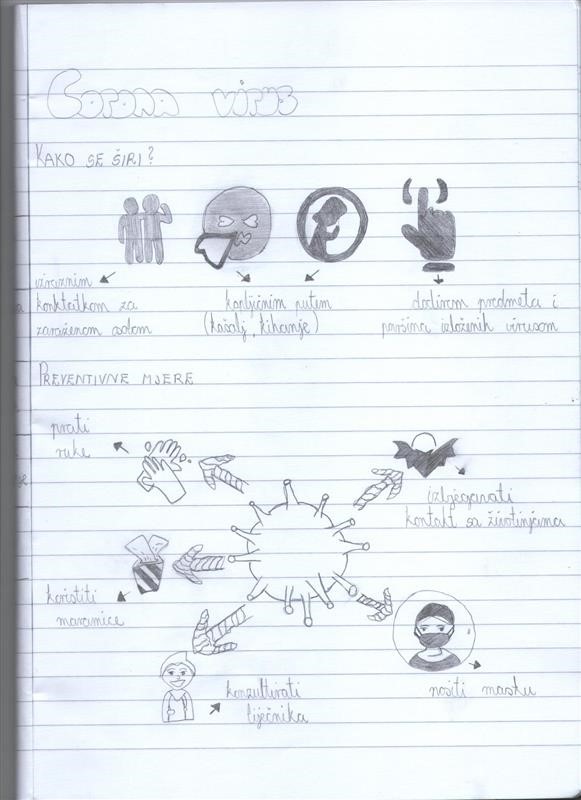 Corona virus
KAKO SE ŠIRI?
kontaktom za
zaraženom osobom
kapljičnim putem
(kašalj, kihanje)
dodirom predmeta i
površina izloženih virusom
PREVENTIVNE MJERE
prati
ruke
izbjegavati
kontakt sa životinjama
koristiti
maramice
konzultirati
liječnika
nositi masku